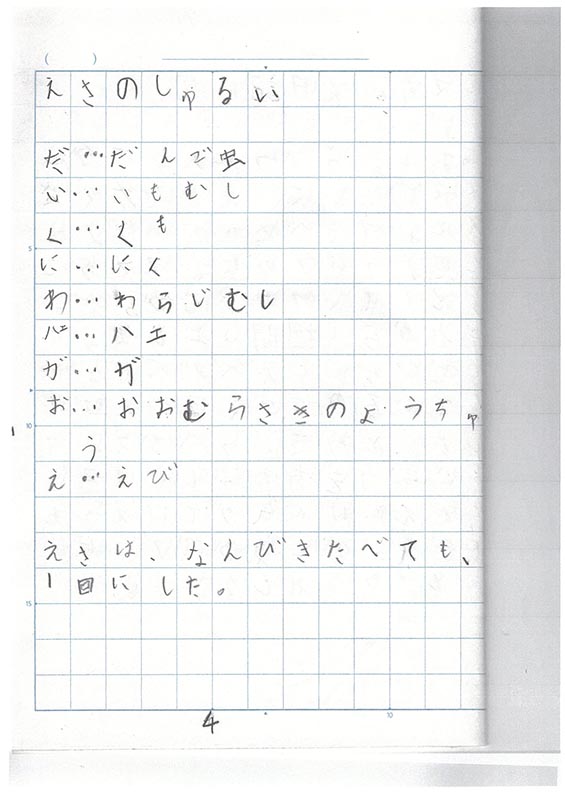 (　　)
えさのしゅるい
だ…だんご虫
い…いもむし
く…くも
に…にく
わ…わらじむし
ハエ…ハエ
ガ…ガ
お…おおむらさきのようちゅ
う
え…えび
えさは、なんびきたべても、
1回にした。
5
10
15
10
4